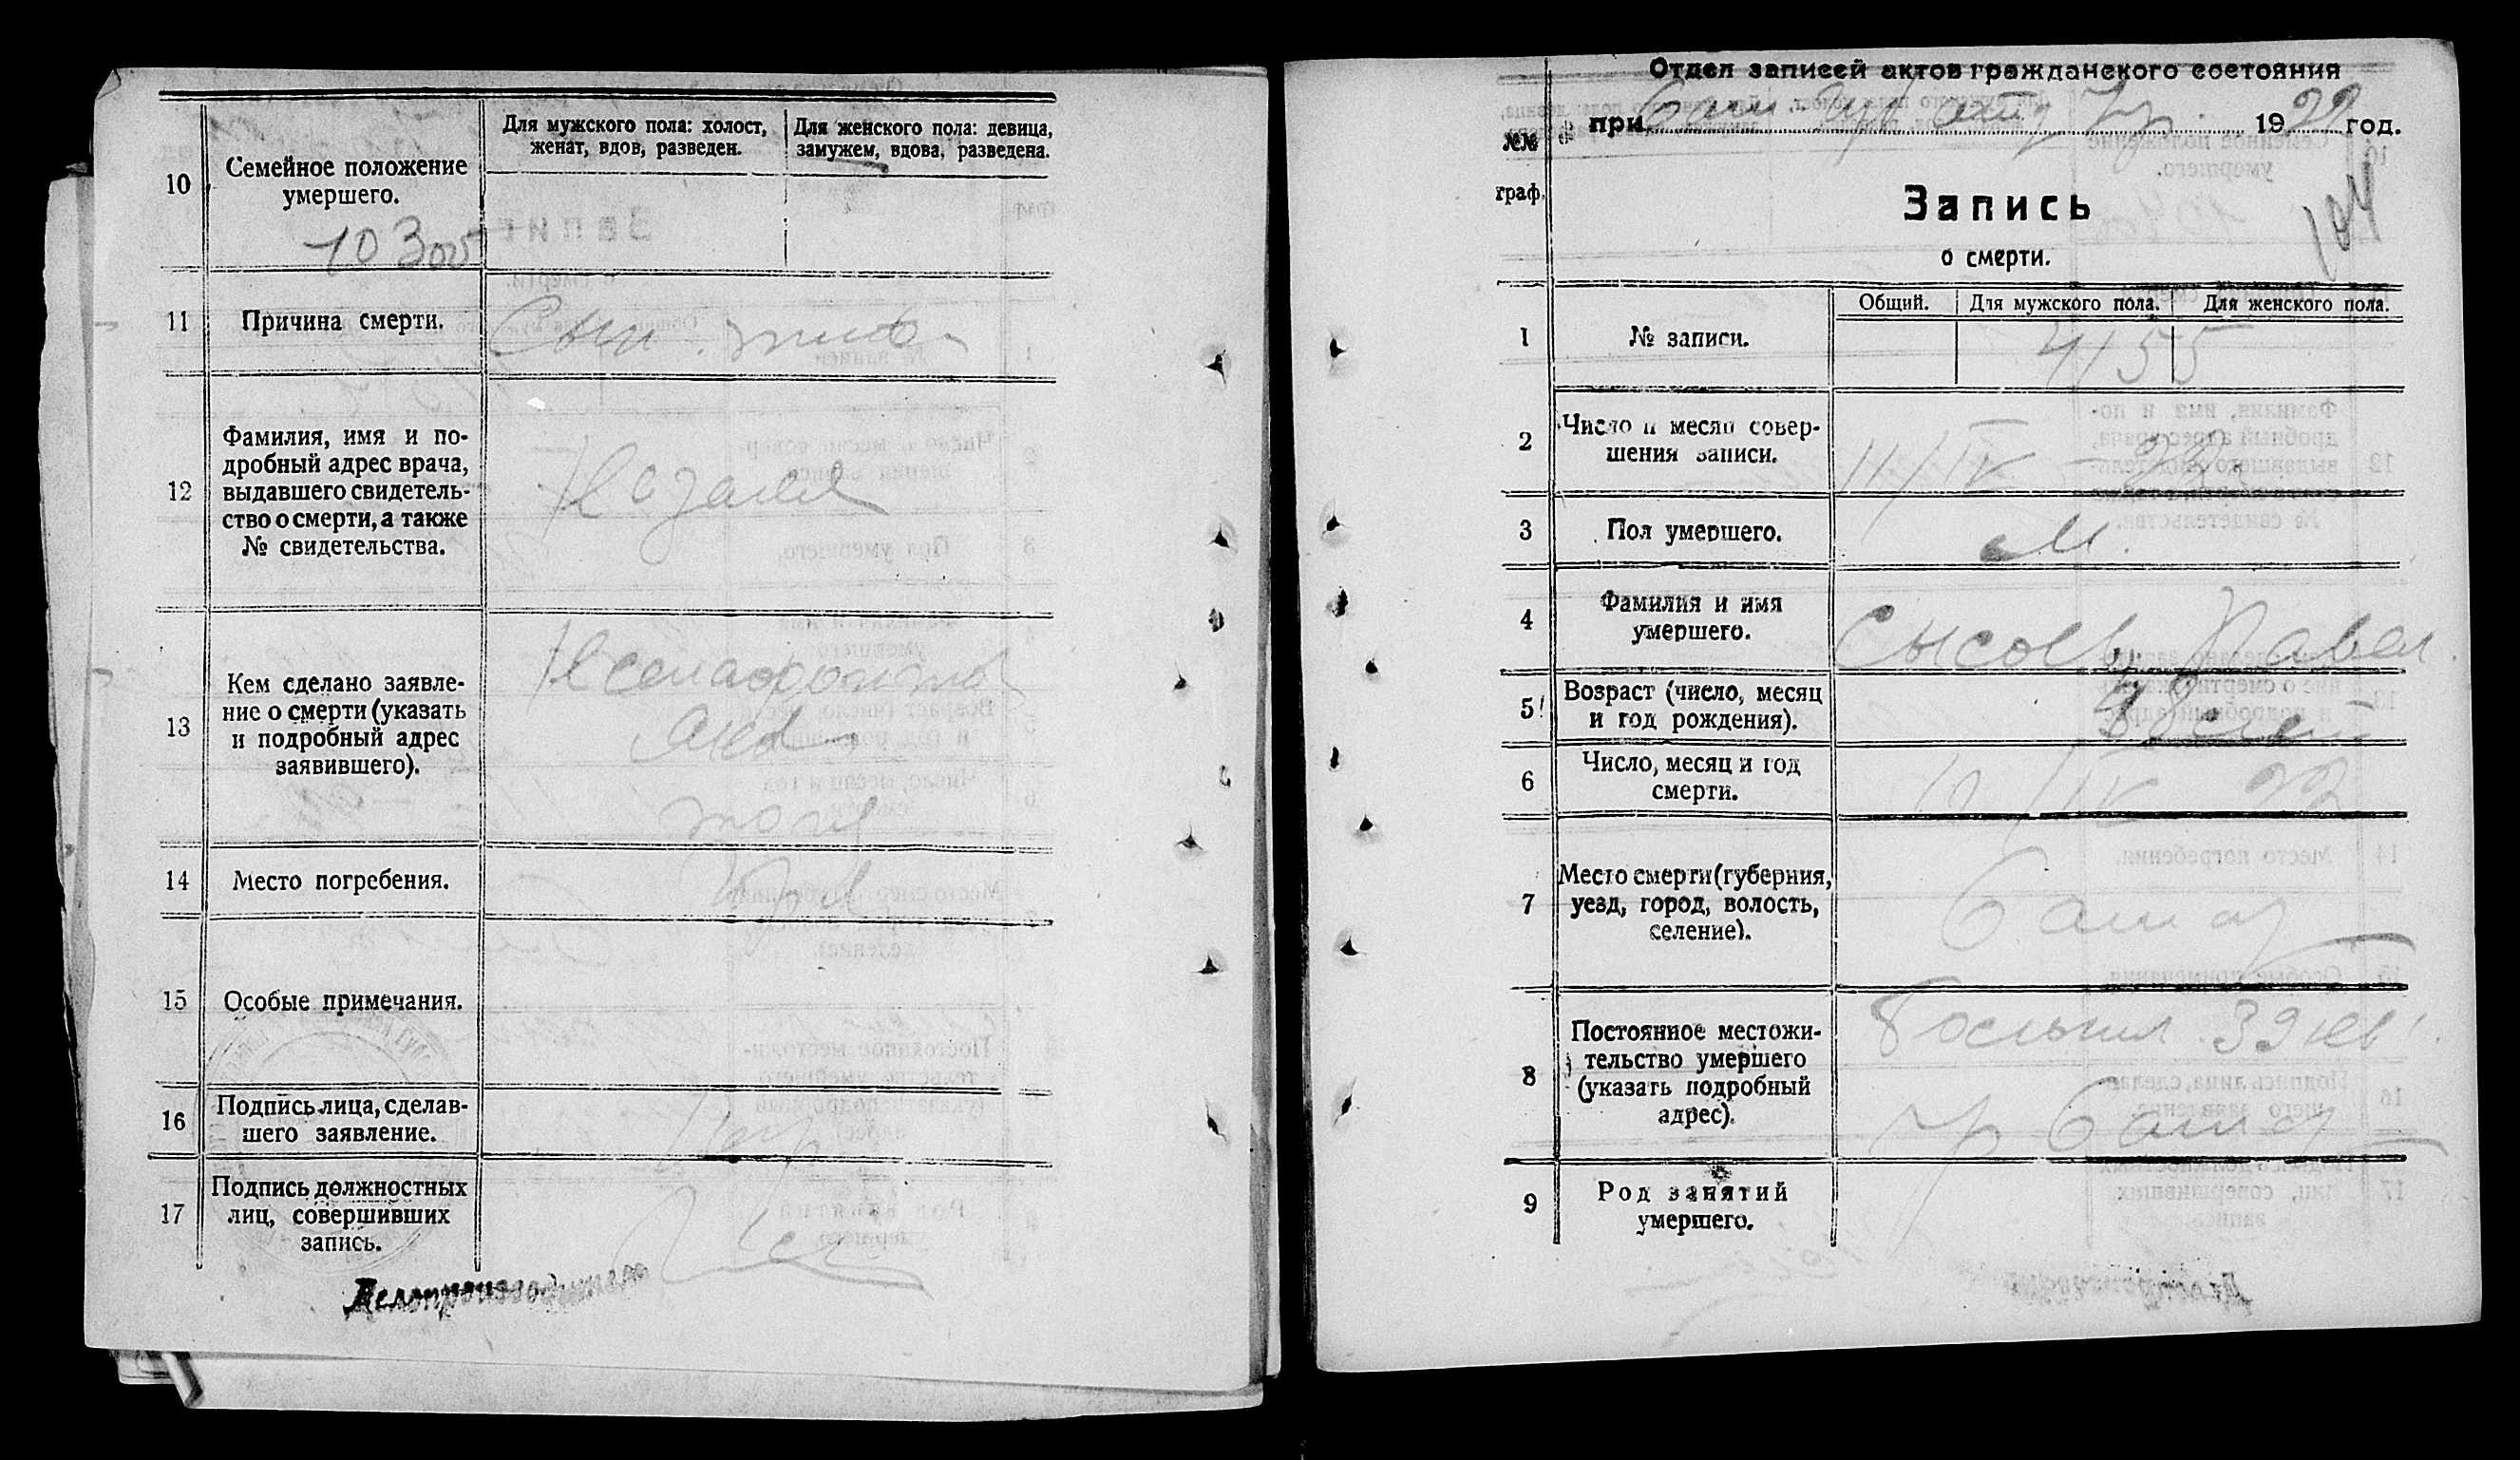 10
Семейное положение
умершего.
Для мужского пола: холост,
женат, вдов, разведен.
Для женского пола: девица,
замужем, вдова, разведена.
11
Причина смерти.
Сып. тиф
12
Фамилия, имя и по-
дробный адрес врача,
выдавшего свидетель-
ство о смерти, а также
№ свидетельства.
13
Кем сделано заявле-
ние о смерти (указать
и подробный адрес
заявившего).
14
Место погребения.
15
Особые примечания.
16
Подпись лица, сделав-
шего заявление.
17
Подпись должностных
лиц, совершивших
запись.
Делопроизводитель
Отдел записей актов гражданского состояния
при 19 22 год.
№№
граф.
Запись
о смерти.
104
1
№ записи.
Общий.
Для мужского пола.
Для женского пола.
4155
2
Число и месяц совер-
шения записи.
11/IV 22
3
Пол умершего.
М.
4
Фамилия и имя
умершего.
Сысоев Павел.
5
Возраст (число, месяц
и год рождения).
48 лет
6
Число, месяц и год
смерти.
10/IV 22
7
Место смерти (губерния,
уезд, город, волость,
селение).
8
Постоянное местожи-
тельство умершего
(указать подробный
адрес).
39 кв.
9
Род занятий
умершего.